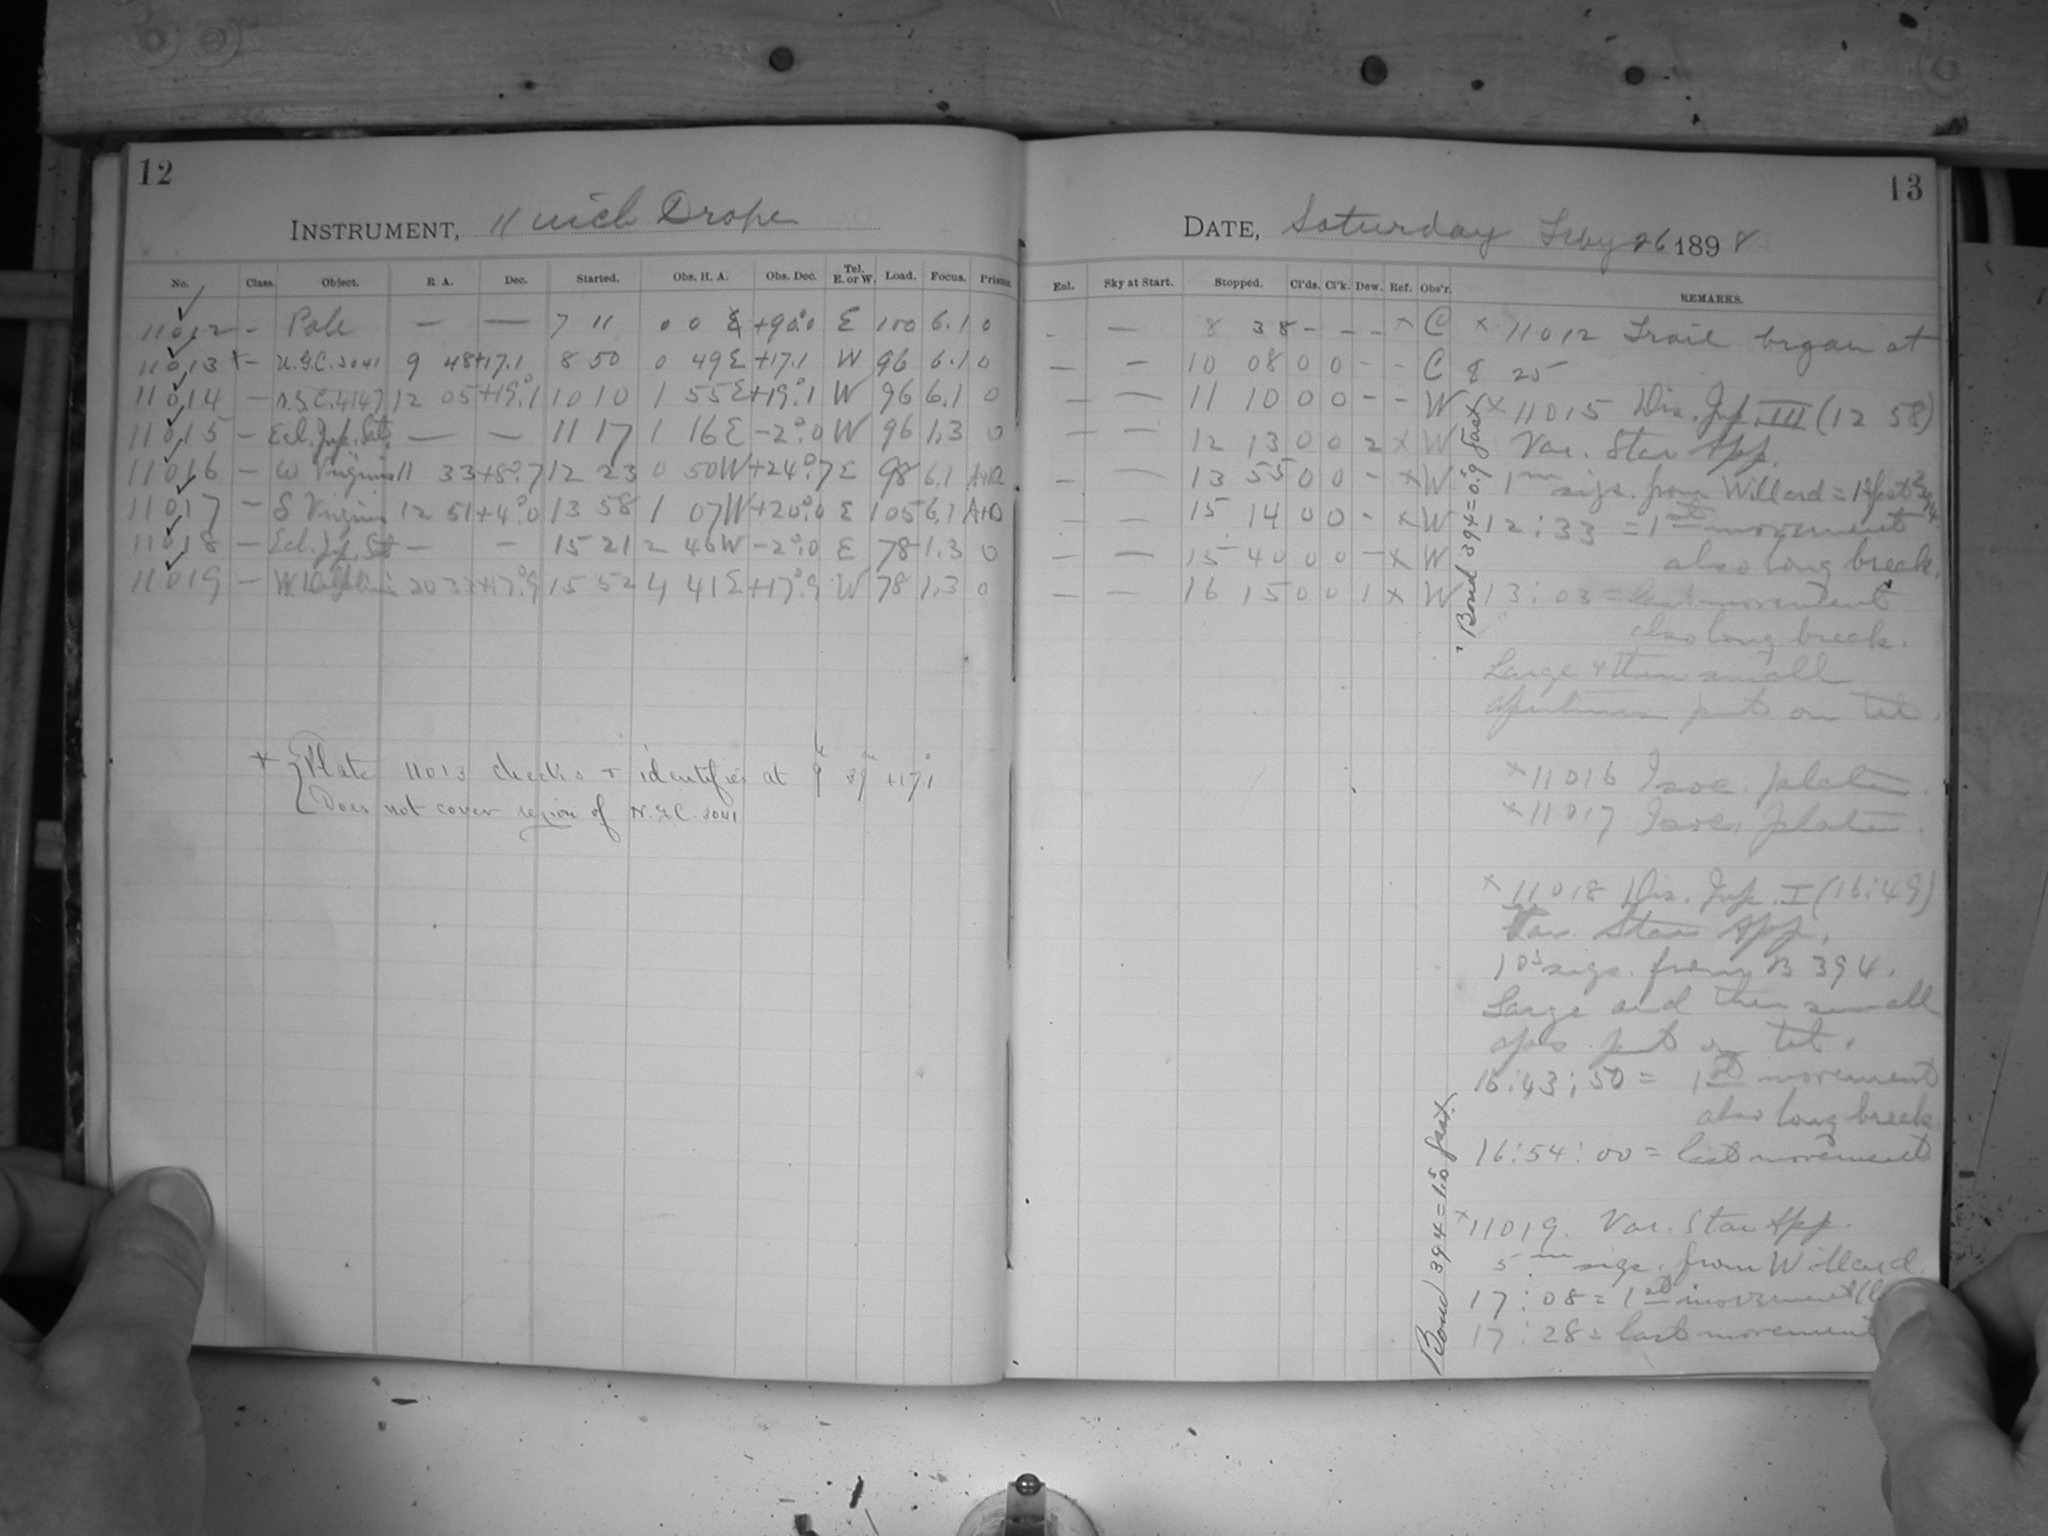 12
INSTRUMENT, 11 inch Drape
No. Class. Object. R. A. Dec. Started. Obs. H. A. Obs. Dec. Tel. E. or W. Load. Focus. Prisms
11012 — Pole — — 7 11 0 0 E +90°.0 E 100 6.1 0
11013 * — N.G.C. 3041 9 48 +17.1 8 50 0 49E +17.1 W 96 6.1 0
11014 — N.G.C. 4147 12 05 +19°.1 10 10 1 55E +19°.1 W 96 6.1 0
11015 — Ecl. Jup. Sat. — — 11 17 1 16E -2°.0 W 96 1.3 0
11016 — ω Virginis 11 33 +8°.7 12 23 0 50W +24°.7 E 98 6.1
11017 — δ Virginis 12 51 +4°.0 13 58 1 07W +20°.0 E 105 6.1
11018 — Ecl. Jup. Sat — — 15 21 2 46W -2°.0 E 78 1.3 0
11019 — W Delphini 20 33 +17°.9 15 52 4 41E +17°.9 W 78 1.3 0
* Plate 11013 checks + identifies at 9h 39m +17°.1
Does not cover region of N.G.C. 3041
13
DATE, Saturday Feby 26 1898
Enl. Sky at Start. Stopped. Cl'ds. Cl'k. Dew. Ref. Obs'r. REMARKS.
- — 8 38 - - - x C
— — 10 08 0 0 - - C
— — 11 10 0 0 - - W
— — 12 13 0 0 2 x W
— — 13 55 0 0 - x W
— — 15 14 0 0 - x W
— — 15 40 0 0 - x W
— — 16 15 0 0 1 x W
x 11012 Trail began at
8 25
x 11015 Dis. Jup. III (12 58)
Var. Star App.
1m sigs. from Willard =
12:33 = 1st movement
also long break.
13:03 = last movement
also long break.
Large & then small
apertures put on tel.
Bond 394 = 0s.9 fast
x 11016 Isoc. plate.
x 11017 Isoc. plate.
x 11018 Dis. Jup. I (16:49)
Var. Star App.
10s sigs. from B 394.
Large and then small
aps. put on tel.
16:43:50 = 1st movement
also long break
16:54:00 = last movement
Bond 394 = 1s.0 fast
x 11019. Var. Star App.
5m sigs. from Willard.
17:08 = 1st movement
17:28 = last movement